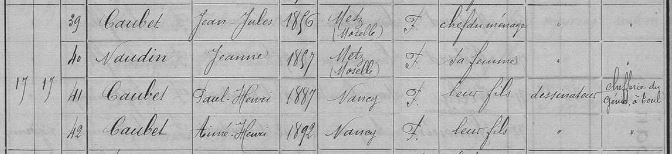 39 Caubet Jean-Jules 1856 Metz (Moselle) F. chef du ménage " "
40 Naudin Jeanne 1857 Metz (Moselle) F. sa femme " "
17 17 41 Caubet Paul-Henri 1887 Nancy F. leur fils dessinateur chefferie du génie, à Toul
42 Caubet Aimé-Henri 1892 Nancy F. leur fils " "